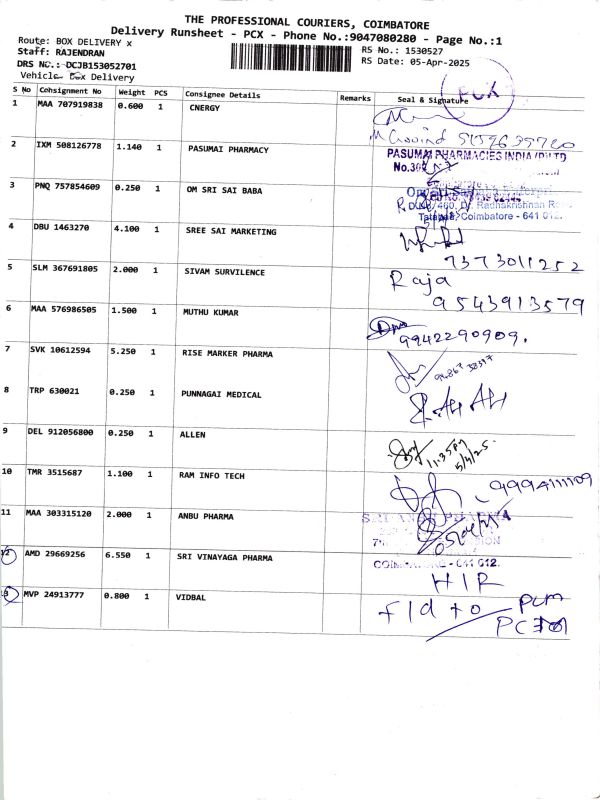 THE PROFESSIONAL COURIERS, COIMBATORE
Delivery Runsheet - PCX - Phone No.:9047080280 - Page No.:1
Route: BOX DELIVERY x
RS No.: 1530527
Staff: RAJENDRAN
RS Date: 05-Apr-2025
DRS No.: DCJB153052701
Vehicle: Box Delivery
PCX
S No Consignment No Weight PCS Consignee Details Remarks Seal & Signature
1 MAA 707919838 0.600 1 CNERGY
M Govind
2 IXM 508126778 1.140 1 PASUMAI PHARMACY
PASUMAI PHARMACIES INDIA (P) LTD
3 PNQ 757854609 0.250 1 OM SRI SAI BABA
Dr. Radhakrishnan
Tatabad, Coimbatore - 641 012.
4 DBU 1463270 4.100 1 SREE SAI MARKETING
7373011252
5 SLM 367691805 2.000 1 SIVAM SURVILENCE
Raja
9543913579
6 MAA 576986505 1.500 1 MUTHU KUMAR
9942290909.
7 SVK 10612594 5.250 1 RISE MARKER PHARMA
8 TRP 630021 0.250 1 PUNNAGAI MEDICAL
9 DEL 912056800 0.250 1 ALLEN
11.35 PM
5/4/25.
10 TMR 3515687 1.100 1 RAM INFO TECH
9994111109
11 MAA 303315120 2.000 1 ANBU PHARMA
12 AMD 29669256 6.550 1 SRI VINAYAGA PHARMA
COIMBATORE - 641 012.
H I R
13 MVP 24913777 0.800 1 VIDBAL